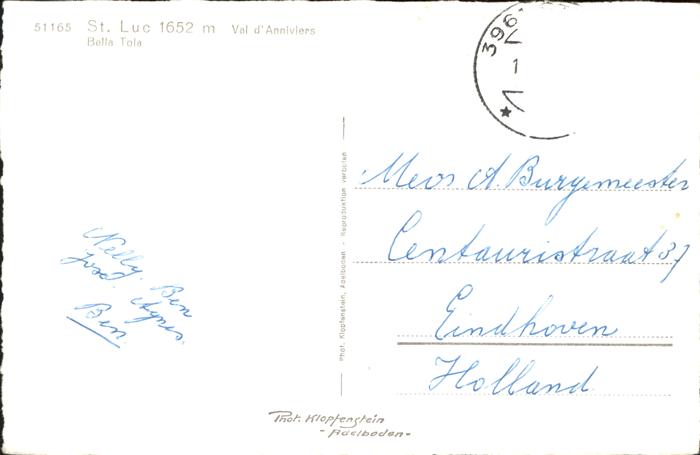 51165 St. Luc 1652 m Val d'Anniviers
Bella Tola
396
1 -
Mevr A. Burgemeester
Centauristraat 37
Eindhoven
Holland
Nelly. Ben
José. Agnes.
Ben
Phot. Klopfenstein, Adelboden - Reproduktion verboten
Phot. Klopfenstein
- Adelboden -